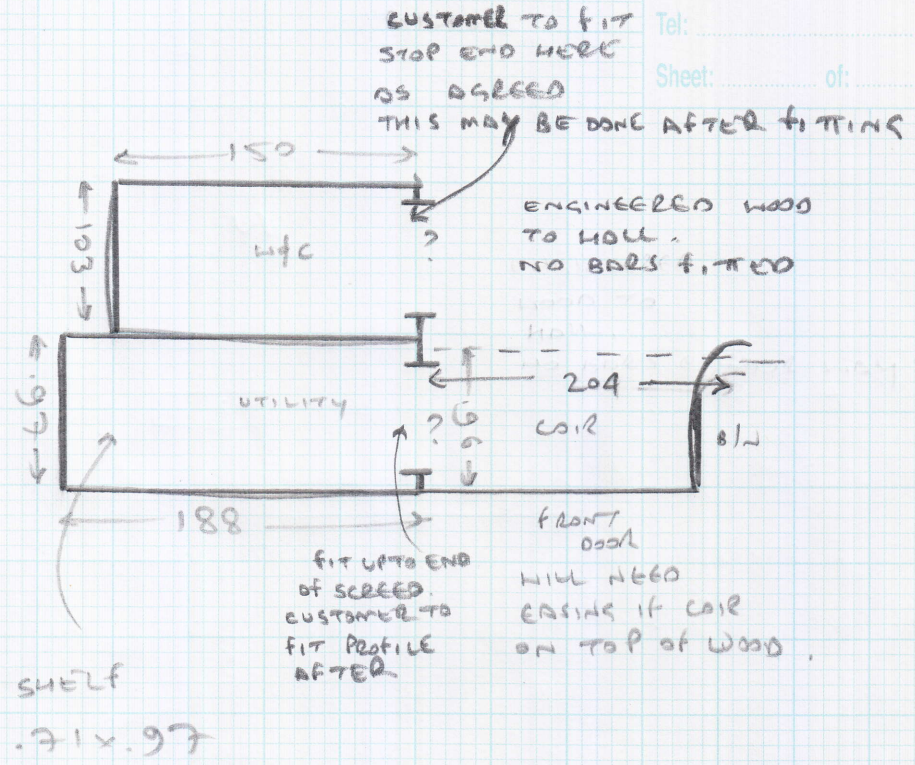 CUSTOMER TO FIT
STOP END HERE
AS AGREED
THIS MAY BE DONE AFTER FITTING
Tel:
Sheet: of:
150
103
W/C
?
ENGINEERED WOOD
TO HALL.
NO BARS FITTED
.97
UTILITY
?
99
204
COIR
B/N
188
FIT UPTO END
OF SCREED.
CUSTOMER TO
FIT PROFILE
AFTER
FRONT
DOOR
WILL NEED
EASING IF COIR
ON TOP OF WOOD.
SHELF
.71x.97